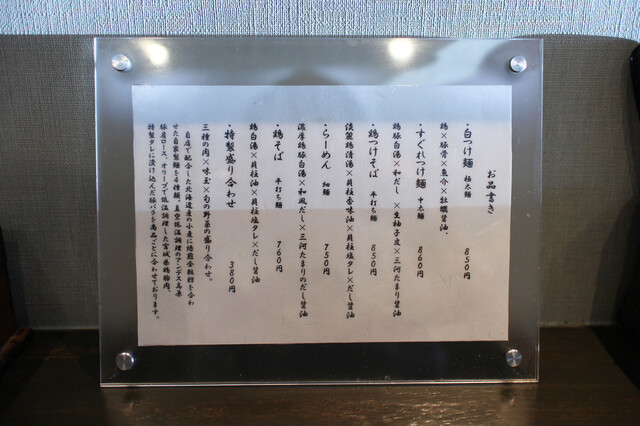 お品書き
・白つけ麺 極太麺 850円
鶏×豚骨×魚介×牡蠣醤油、
・すぐれつけ麺 中太麺 860円
鶏豚白湯×和だし ×生柚子皮×三河たまり醤油
・鶏つけそば 平打ち麺 850円
淡麗鶏清湯×貝柱香味油×貝柱塩タレ×だし醤油
・らーめん 細麺 750円
濃厚鶏豚白湯×和風だし×三河たまりのだし醤油
・鶏そば 平打ち麺 760円
鶏白湯×貝柱油×貝柱塩タレ×だし醤油
・特製盛り合わせ 380円
三種の肉×味玉×旬の野菜の盛り合わせ。
自店で配合した北海道産の小麦に焙煎全粒粉を合わ
せた自家製麺を4種類。真空低温調理のアンデス高原
豚肩ロース、オリーブで低温調理した宮城県鶏胸肉、
特製タレに漬け込んだ豚バラを商品ごとに合わせております。